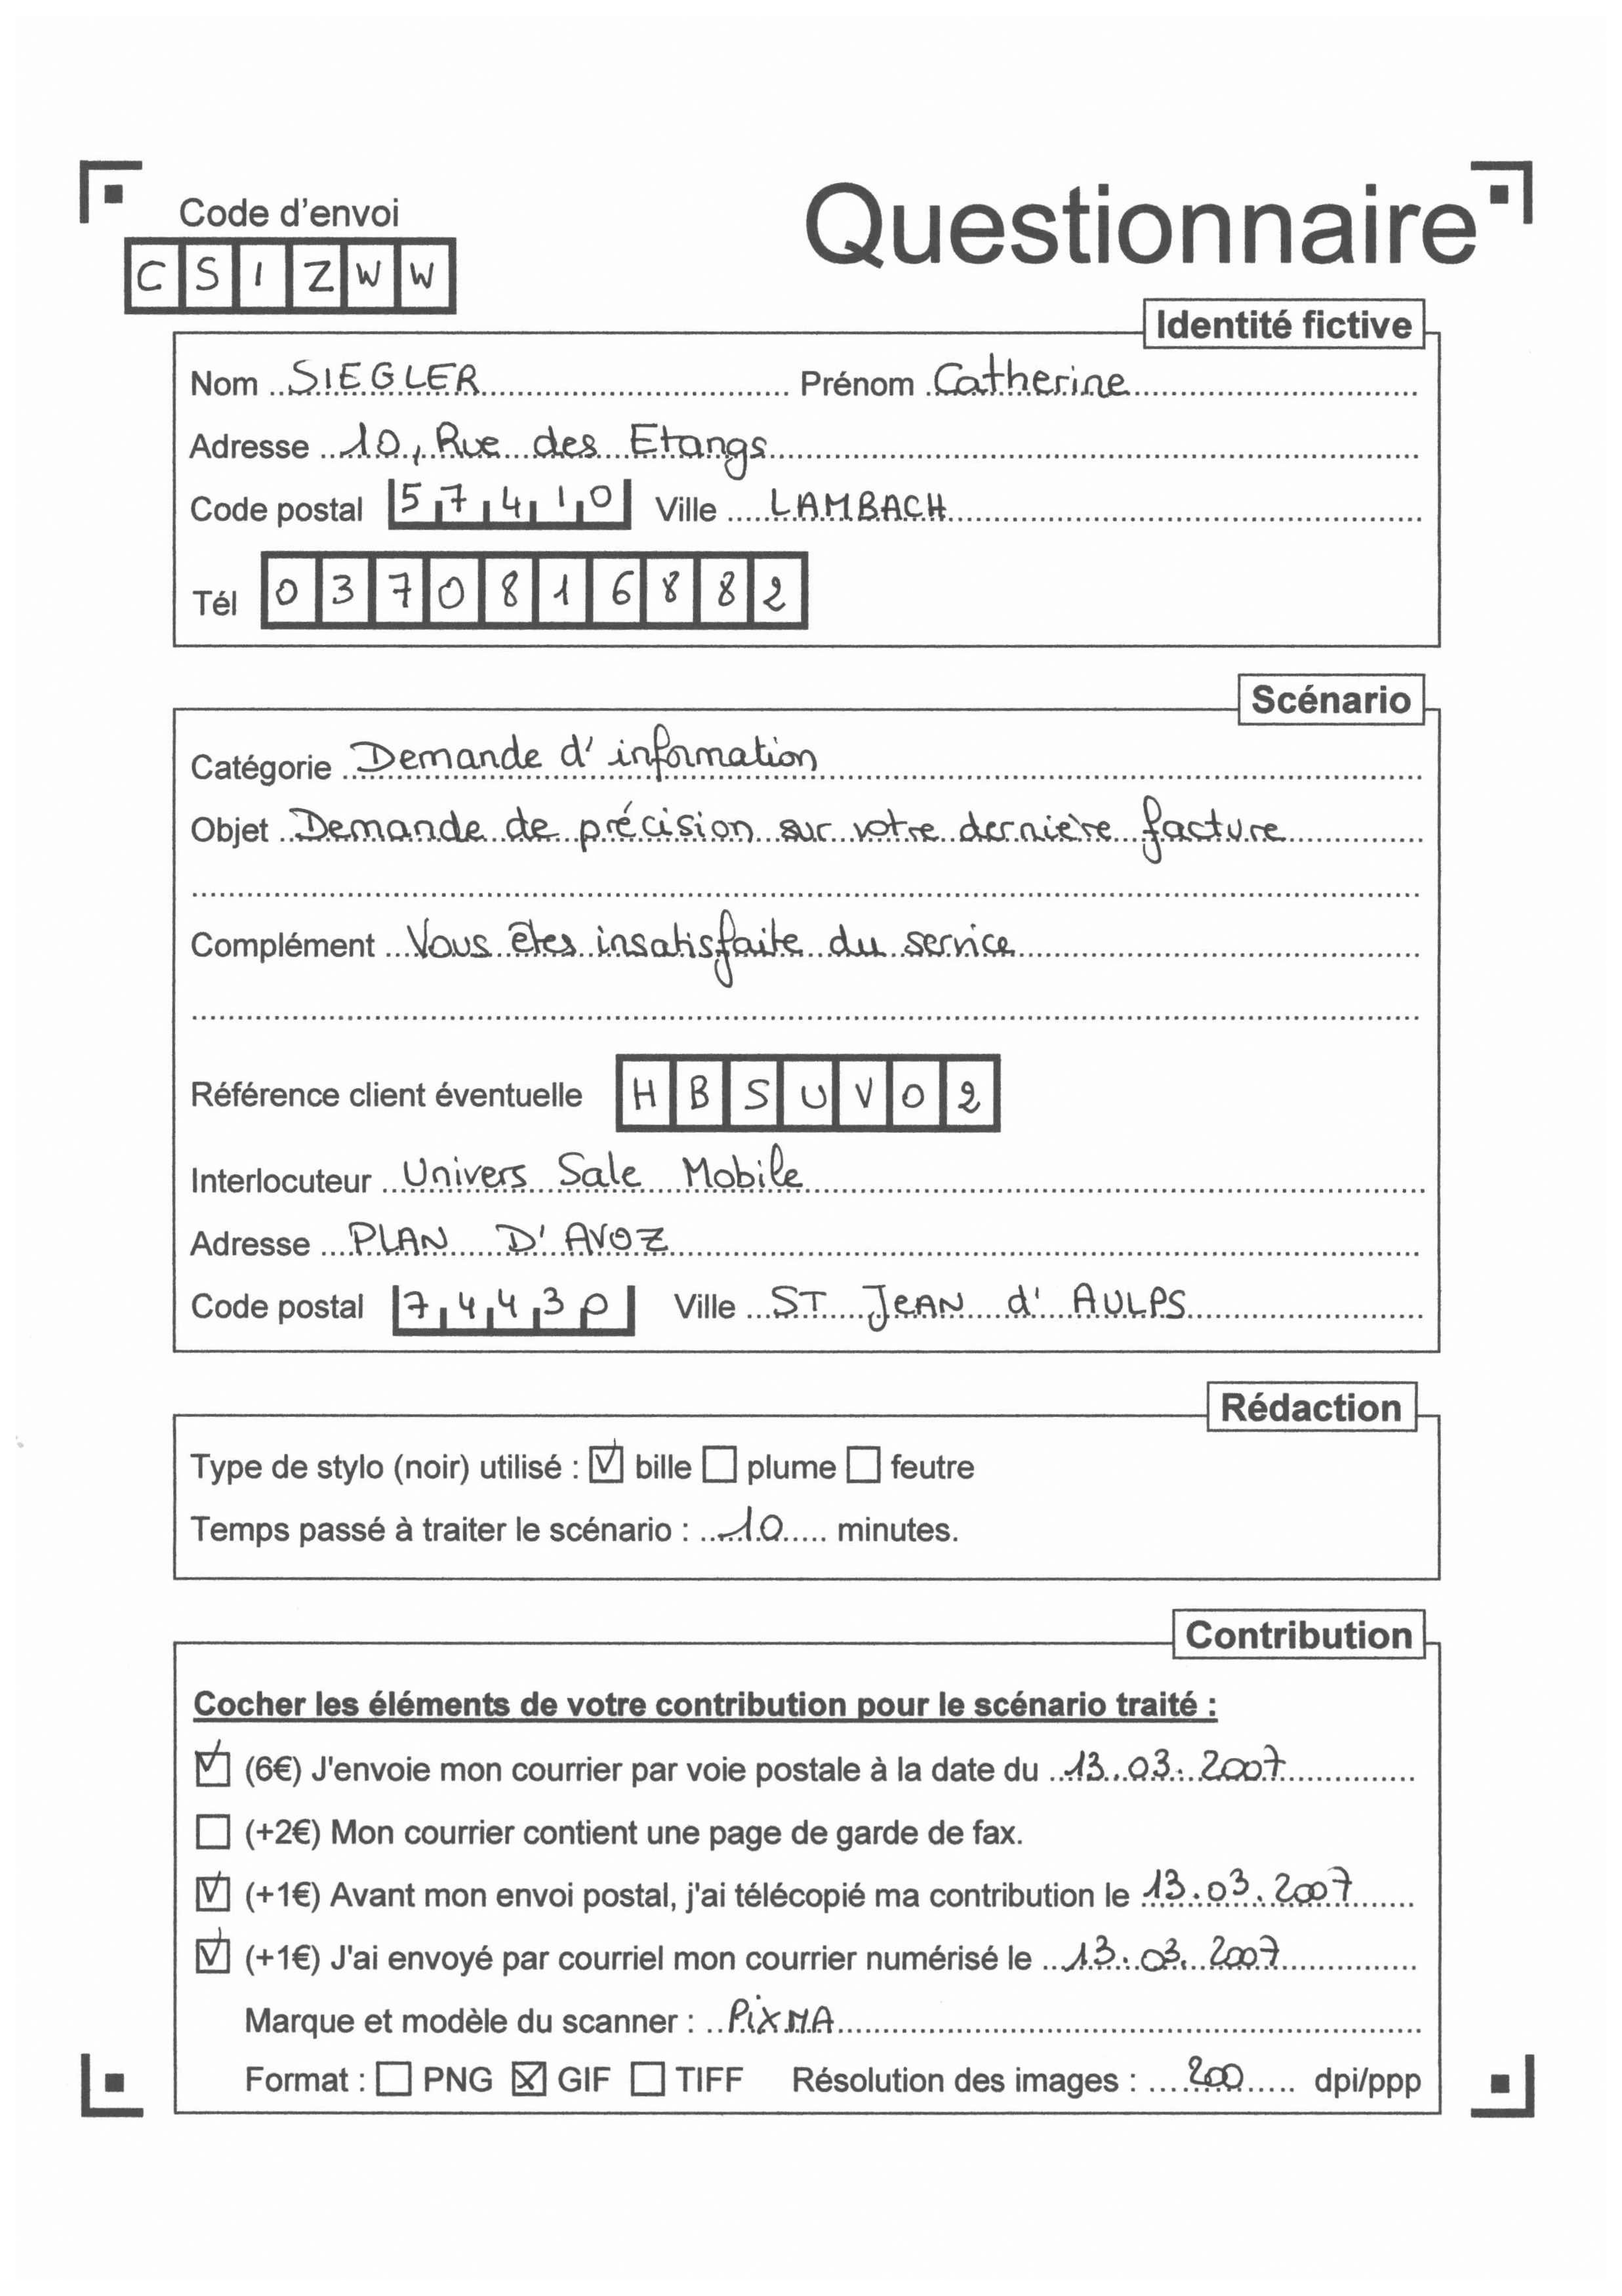 Questionnaire
Code d'envoi
C S I Z W W
Identité fictive
Nom SIEGLER Prénom Catherine
Adresse 10, Rue des Etangs
Code postal 57410 Ville LAMBACH
Tél 0370816882
Scénario
Catégorie Demande d'information
Objet Demande de précision sur votre dernière facture
Complément Vous êtes insatisfaite du service
Référence client éventuelle HBSUV02
Interlocuteur Univers Sale Mobile
Adresse PLAN D'AVOZ
Code postal 74430 Ville ST JEAN d'AULPS
Rédaction
Type de stylo (noir) utilisé : ☑ bille ☐ plume ☐ feutre
Temps passé à traiter le scénario : 10 minutes.
Contribution
Cocher les éléments de votre contribution pour le scénario traité :
☑ (6€) J'envoie mon courrier par voie postale à la date du 13.03.2007
☐ (+2€) Mon courrier contient une page de garde de fax.
☑ (+1€) Avant mon envoi postal, j'ai télécopié ma contribution le 13.03.2007
☑ (+1€) J'ai envoyé par courriel mon courrier numérisé le 13.03.2007
Marque et modèle du scanner : PiXMA
Format : ☐ PNG ☒ GIF ☐ TIFF Résolution des images : 200 dpi/ppp